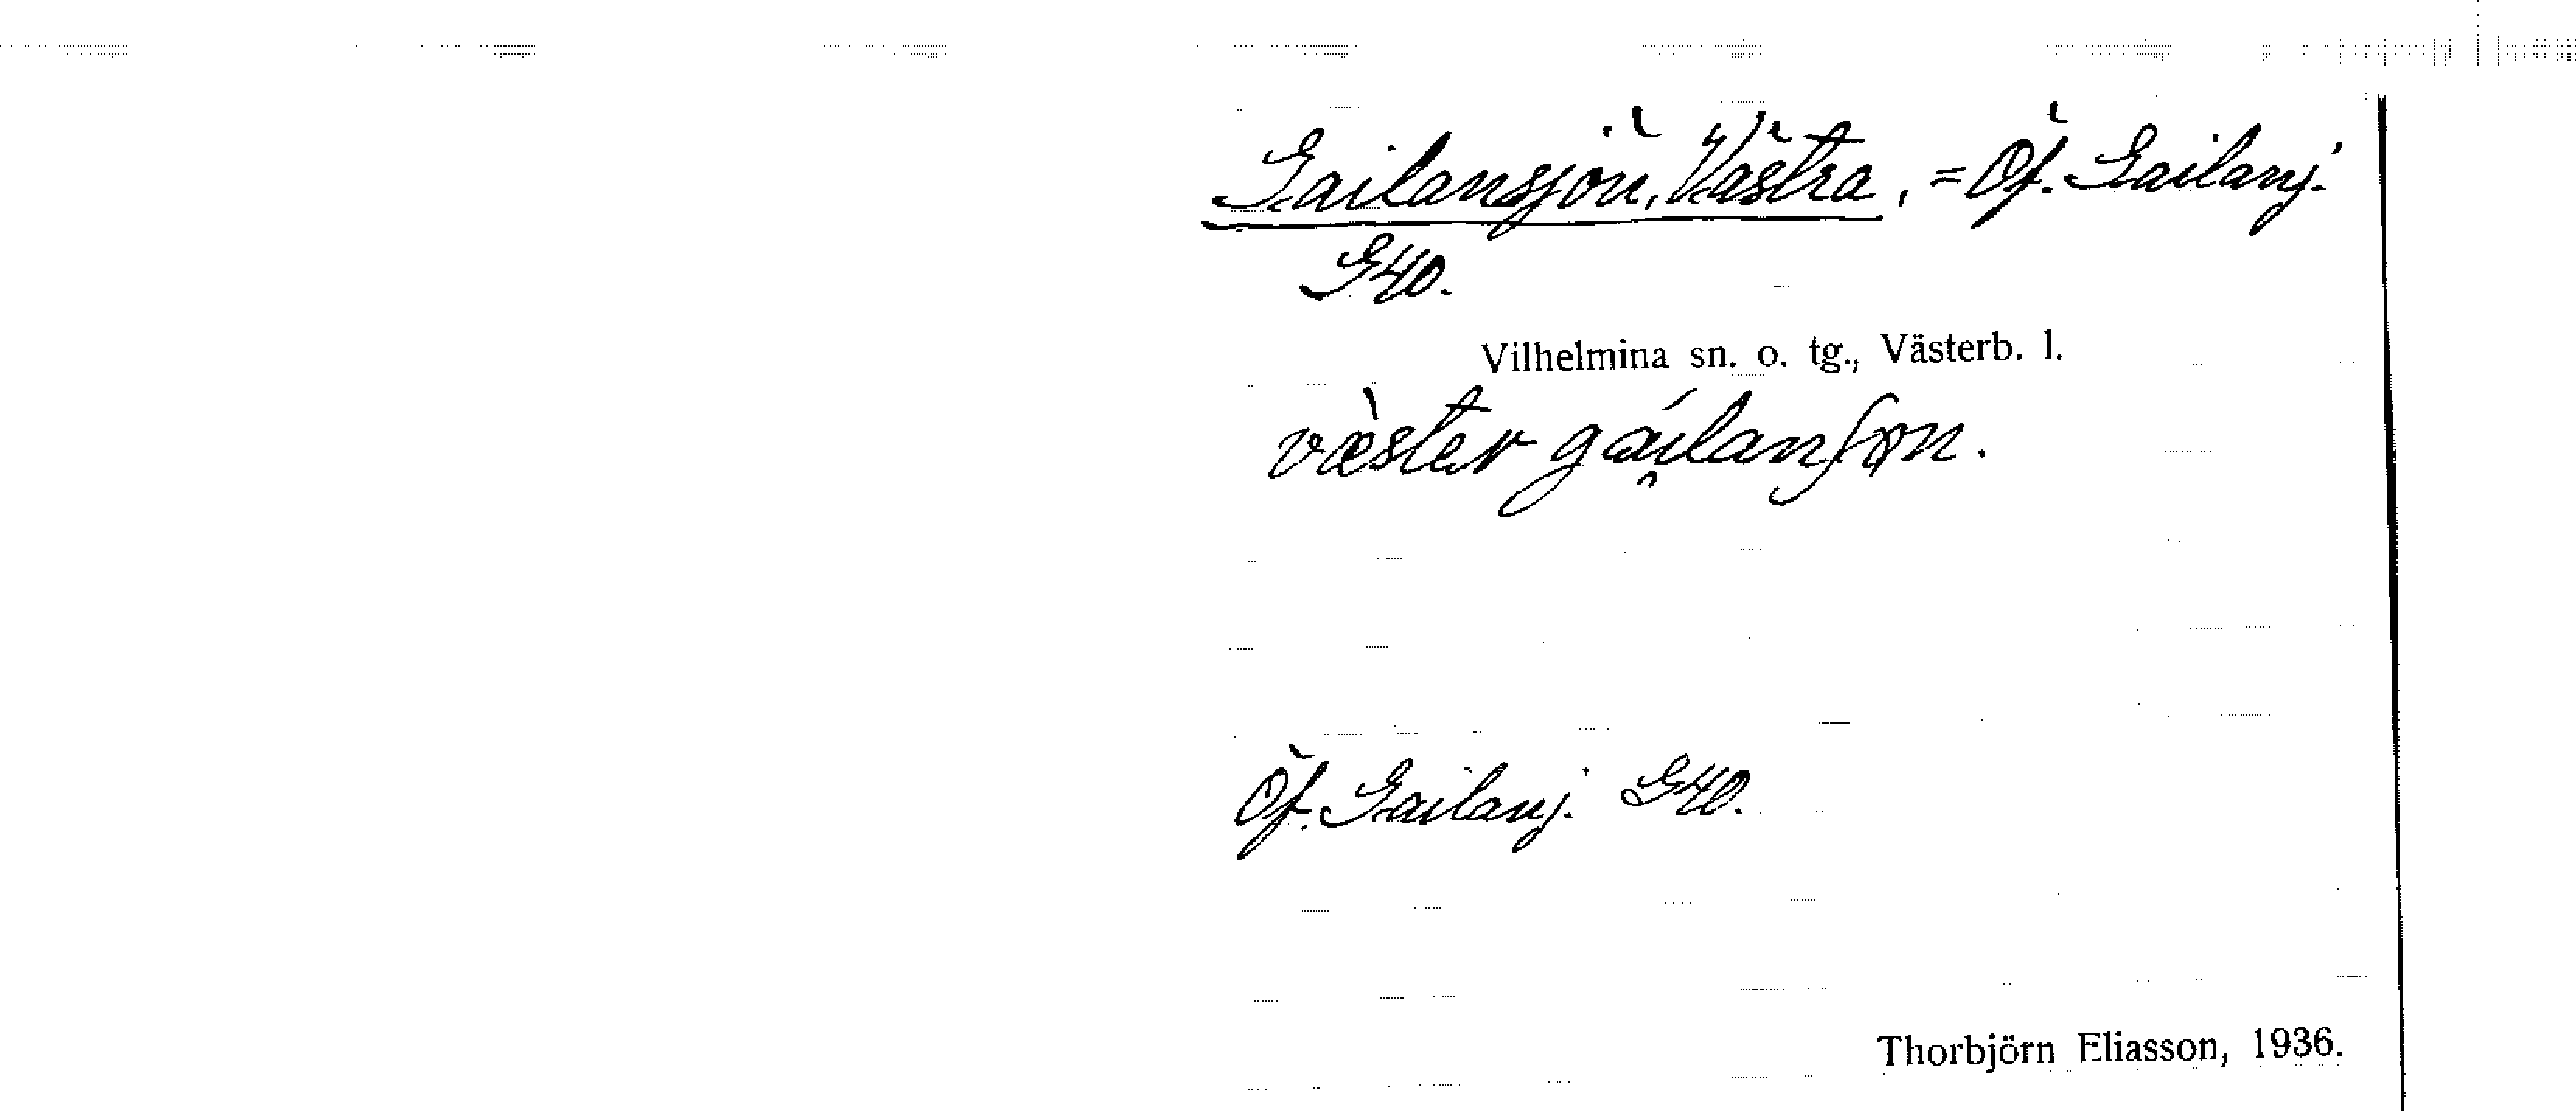 Gailansjön, Västra, = Öf. Gailanj.
G40.
Vilhelmina sn. o. tg., Västerb. l.
væ̀ster gái̯lanʃøn.
Öf. Gailanj. G40.
Thorbjörn Eliasson, 1936.